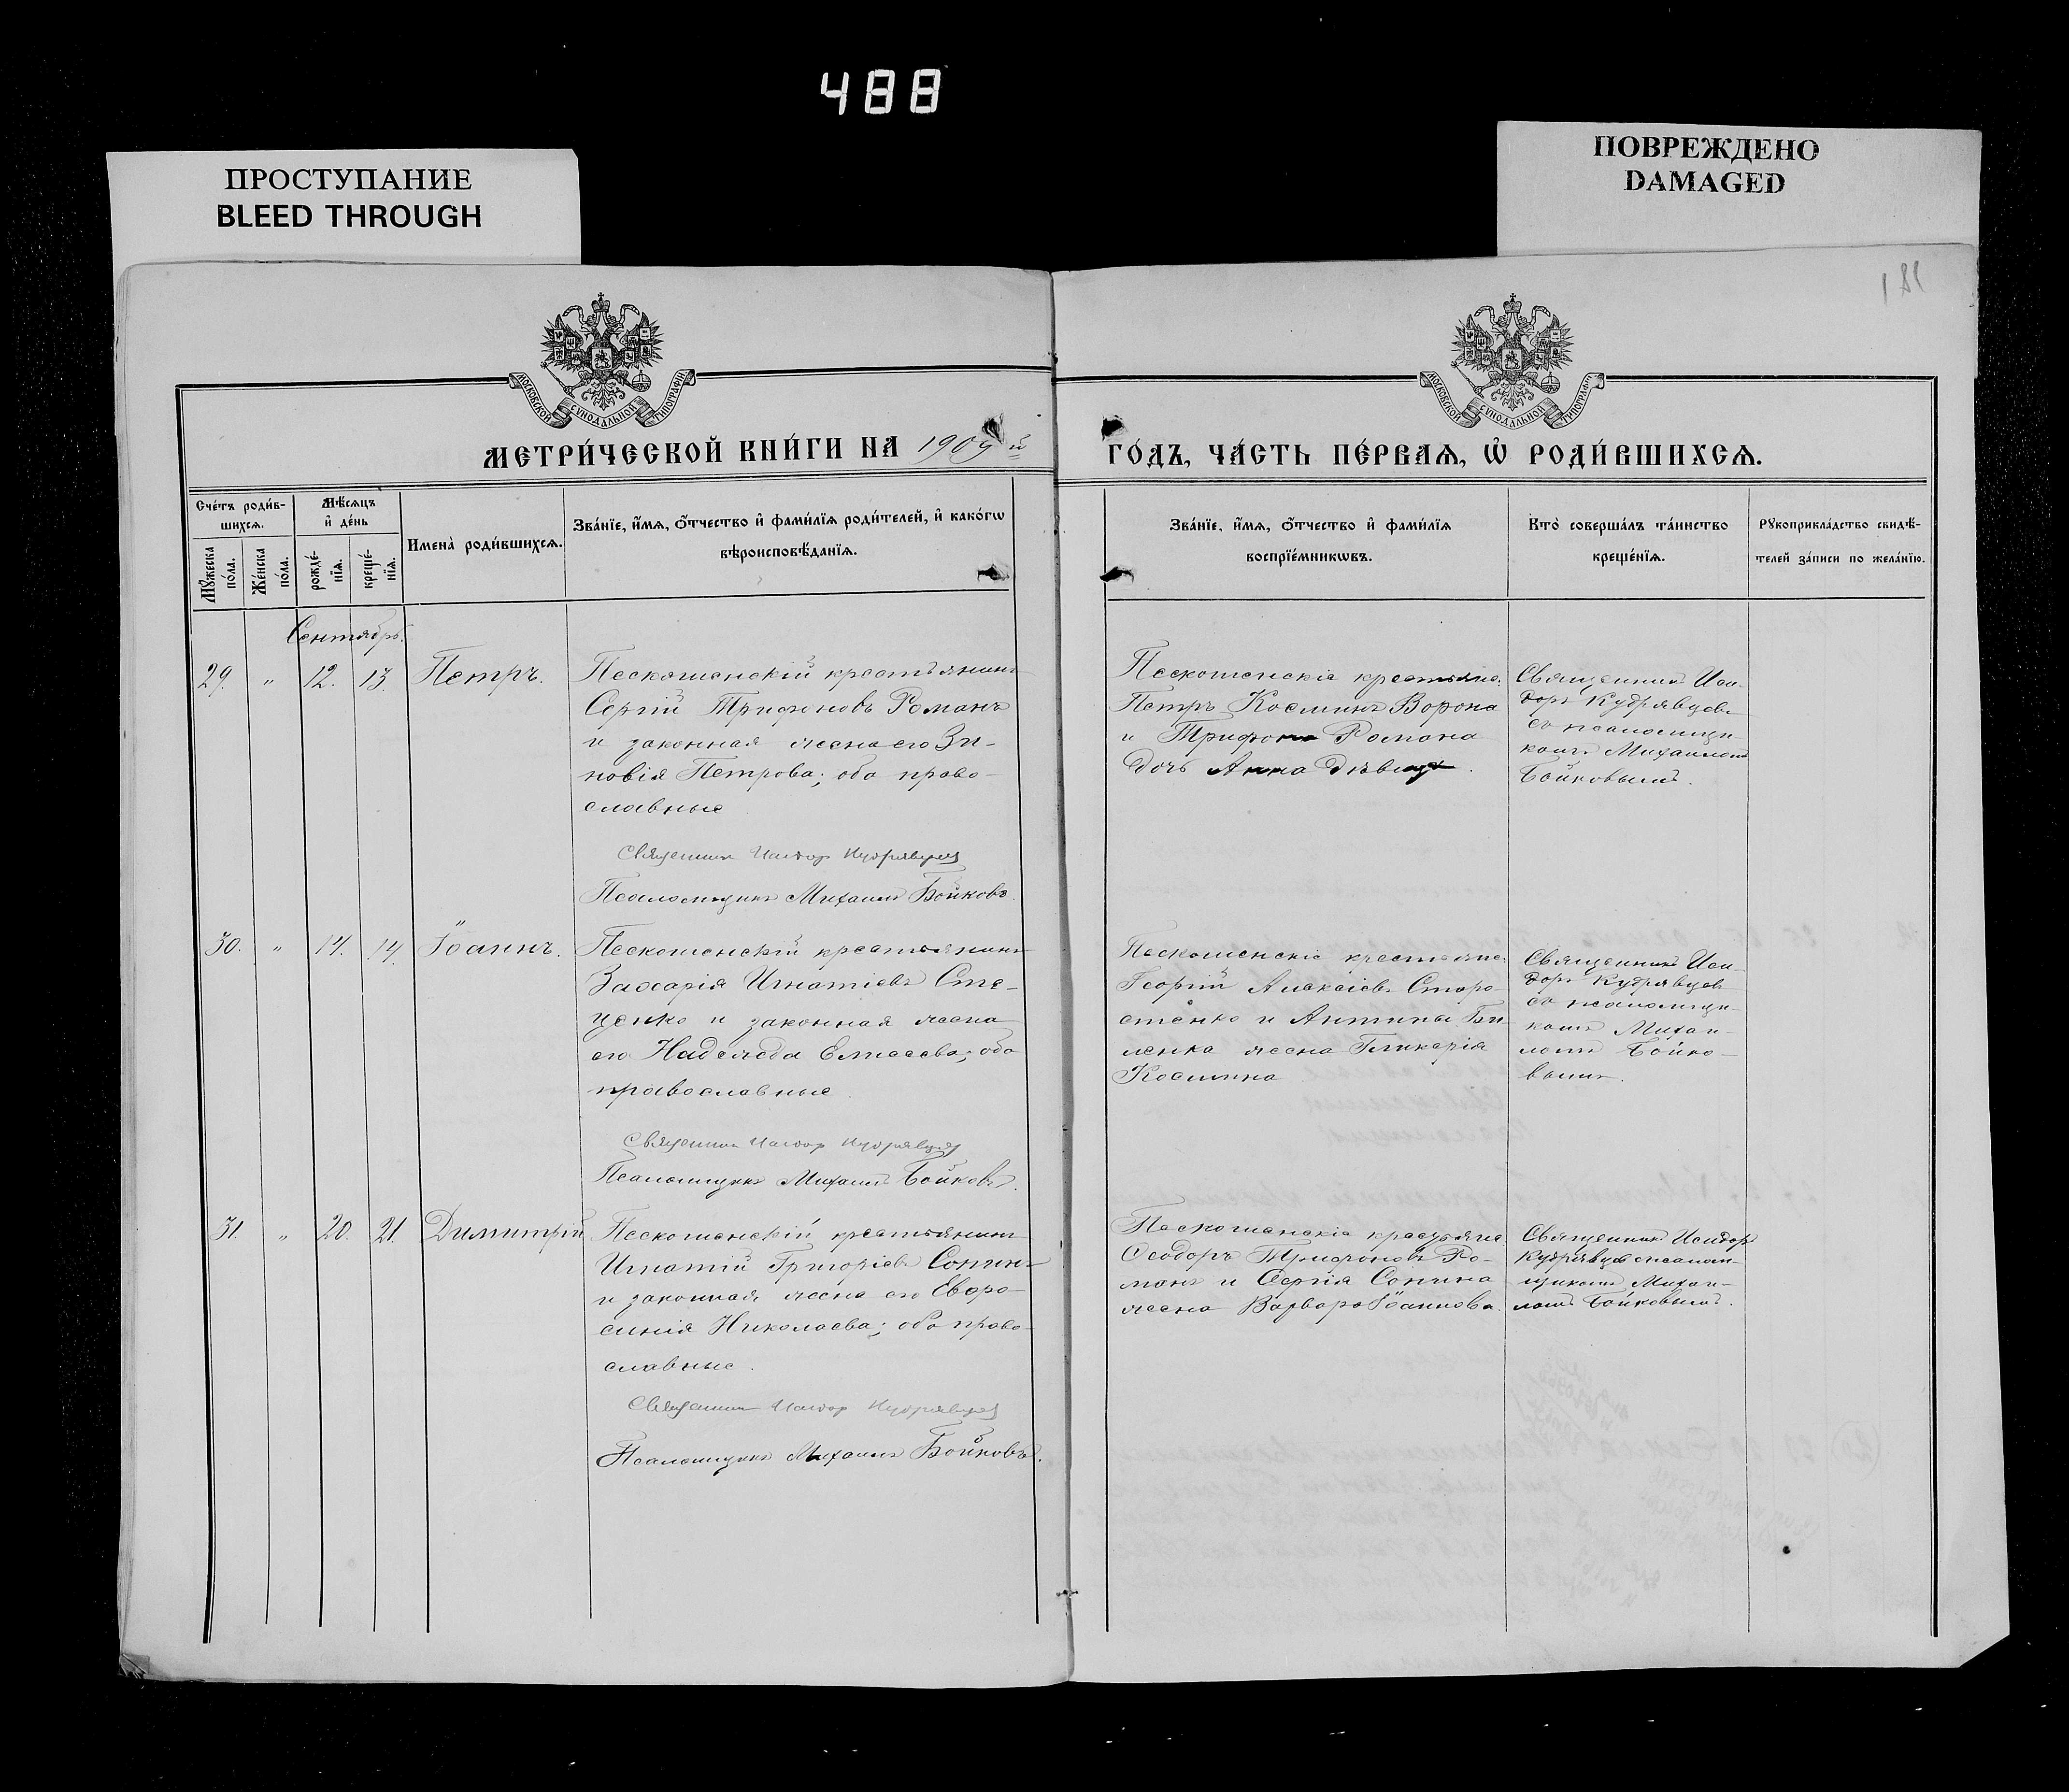 488
ПРОСТУПАНИЕ
BLEED THROUGH
ПОВРЕЖДЕНО
DAMAGED
181
МОСКОВСКОЙ СѴНОДАЛЬНОЙ ТИПОГРАФІИ
МОСКОВСКОЙ СѴНОДАЛЬНОЙ ТИПОГРАФІИ
МЕТРИ́ЧЕСКОЙ КНИ́ГИ НА 1909й
ГО́ДЪ, ЧА́СТЬ ПЕ́РВАѦ, Ѡ҆ РОДИ́ВШИХСѦ.
Сче́тъ роди́в-
шихсѧ.
Мꙋ́жеска
по́ла.
Же́нска
по́ла.
Мѣ́сѧцъ
и҆ де́нь
рожде́-
нїѧ.
креще́-
нїѧ.
Имена̀ роди́вшихсѧ.
Зва́нїе, и҆́мѧ, ѻ҆́тчество и҆ фами́лїѧ роди́телей, и҆ како́гѡ
вѣроисповѣ́данїѧ.
Зва́нїе, и҆́мѧ, ѻ҆́тчество и҆ фами́лїѧ
воспрїе́мникѡвъ.
Кто̀ соверша́лъ та́инство
креще́нїѧ.
Рꙋкоприкла́дство свидѣ́-
телей за́писи по жела́нїю.
Сентябрь.
29. " 12. 13. Петръ.
Пескошенскій крестьянинъ
Сергій Трифоновъ Романъ
и законная жена его Зи-
новія Петрова; оба право-
славные
Священник Исидор Кудрявцев
Псаломщикъ Михаилъ Бойковъ.
Пескошенскіе крестьяне:
Петръ Косминъ Ворона
и Трифона Романа
дочь Анна девица.
Священникъ Иси-
доръ Кудрявцевъ
съ псаломщи-
комъ Михаиломъ
Бойковымъ.
30. " 14. 14. Іоаннъ.
Пескошенскій крестьянинъ
Захарія Игнатіевъ Сте-
ценко и законная жена
его Надежда Елисеева; оба
православные
Священник Исидор Кудрявцев
Псаломщикъ Михаилъ Бойковъ.
Пескошенскіе крестьяне:
Георгій Алексіевъ Старо-
стенко и Антипы Би-
ленка жена Гликерія
Космина
Священникъ Иси-
доръ Кудрявцевъ
съ псаломщи-
комъ Михаи-
ломъ Бойко-
вымъ.
31. " 20. 21. Димитрій
Пескошенскій крестьянинъ
Игнатій Григоріевъ Сопинъ
и законная жена его Евфро-
синія Николаева; оба право-
славные.
Священник Исидор Кудрявцев
Псаломщикъ Михаилъ Бойковъ.
Пескошенскіе крестьяне:
Ѳеодоръ Трифоновъ Ро-
манъ и Сергія Сопина
жена Варвара Іоаннова.
Священникъ Исидоръ
Кудрявцевъ съ псалом-
щикомъ Михаи-
ломъ Бойковымъ.